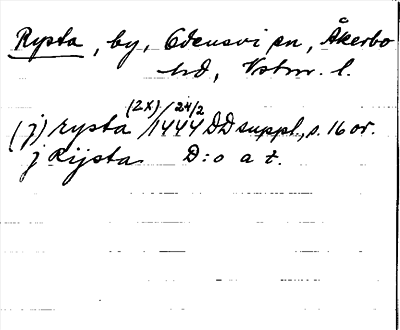 Rysta, by, Odensvi sn, Åkerbo
hd, Vstm. l.
(j) rysta (2x) 24/2 1444 DD suppl., s. 16 or.
j Rijsta D:o a t.